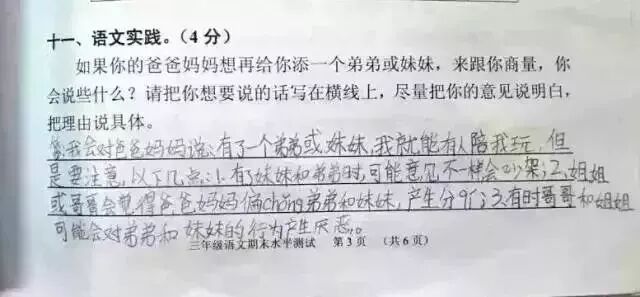 十一、语文实践。（4分）
如果你的爸爸妈妈想再给你添一个弟弟或妹妹，来跟你商量，你
会说些什么？请把你想要说的话写在横线上，尽量把你的意见说明白，
把理由说具体。
我会对爸爸妈妈说：有了一个弟弟或妹妹，我就能有人陪我玩，但
是要注意，以下几点：1.有了妹妹和弟弟时，可能意见不一样会吵架；2、姐姐
或哥哥会觉得爸爸妈妈偏chǒng弟弟和妹妹，产生分歧；3、有时哥哥和姐姐
可能会对弟弟和妹妹的行为产生厌恶。
三年级语文期末水平测试 第3页 （共6页）